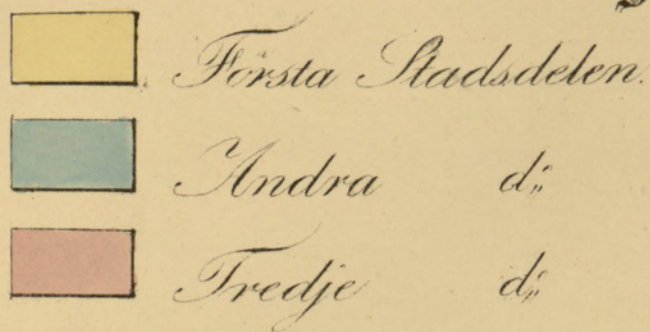 Första Stadsdelen.
Andra d:o
Tredje d:o